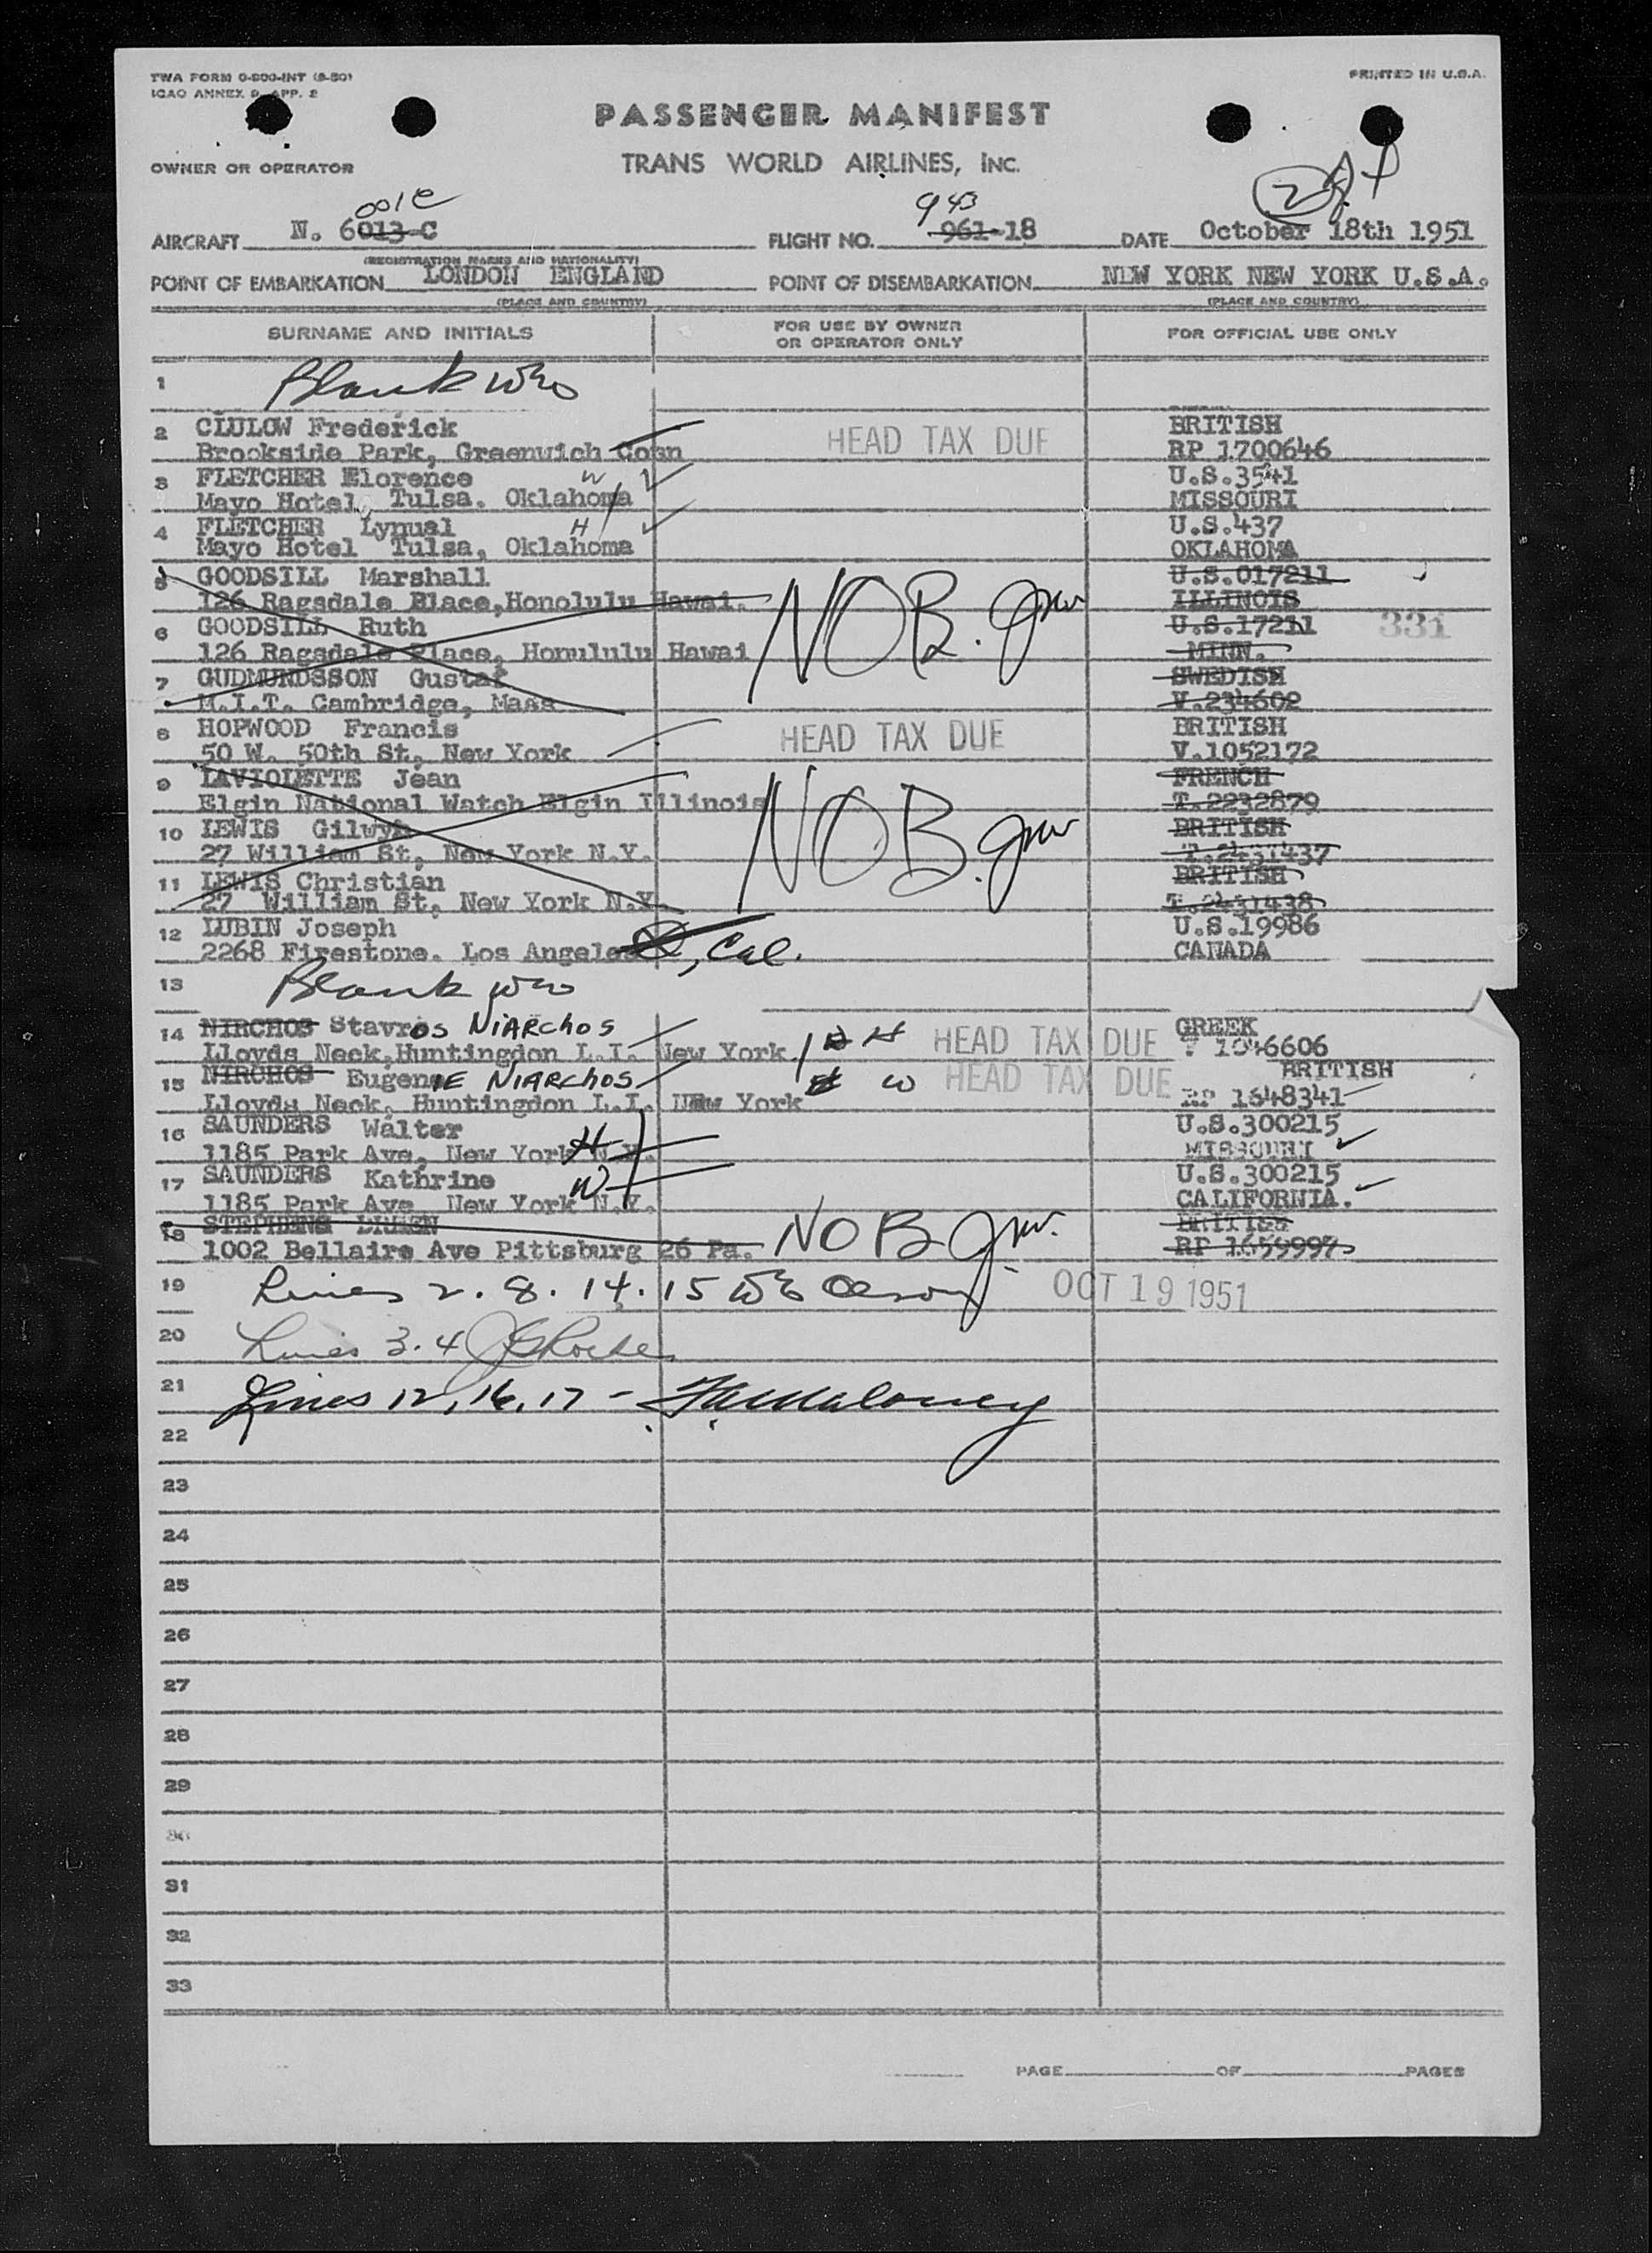 TWA FORM 0-800-INT (8-50)
PRINTED IN U.S.A.
ICAO ANNEX 9 APP. 2
PASSENGER MANIFEST
OWNER OR OPERATOR
TRANS WORLD AIRLINES, INC.
AIRCRAFT N. 6013-C
FLIGHT NO. 943 961-18
DATE October 18th 1951
(REGISTRATION MARKS AND NATIONALITY)
POINT OF EMBARKATION LONDON ENGLAND
POINT OF DISEMBARKATION NEW YORK NEW YORK U.S.A.
(PLACE AND COUNTRY)
(PLACE AND COUNTRY)
SURNAME AND INITIALS
FOR USE BY OWNER
OR OPERATOR ONLY
FOR OFFICIAL USE ONLY
1 Blank
2 CLULOW Frederick HEAD TAX DUE BRITISH
Brookside Park, Greenwich Conn RP 1700646
3 FLETCHER Florence W U.S.3541
Mayo Hotel, Tulsa, Oklahoma MISSOURI
4 FLETCHER Lynual H U.S.437
Mayo Hotel Tulsa, Oklahoma OKLAHOMA
5 GOODSILL Marshall U.S.017211
126 Ragsdale Place,Honolulu Hawai. ILLINOIS
NOB.
6 GOODSILL Ruth U.S.17211 331
126 Ragsdale Place, Honululu Hawai MINN.
7 GUDMUNDSSON Gustaf SWEDISH
M.I.T. Cambridge, Mass V.234602
8 HOPWOOD Francis HEAD TAX DUE BRITISH
50 W. 50th St, New York V.1052172
9 LAVIOLETTE Jean FRENCH
Elgin National Watch Elgin Illinois T.2232879
10 LEWIS Gilwyn NOB. BRITISH
27 William St, New York N.Y. T.2431437
11 LEWIS Christian BRITISH
27 William St, New York N.Y. T.2431438
12 LUBIN Joseph U.S.19986
2268 Firestone. Los Angeles, Cal. CANADA
13 Blank
14 NIRCHOS Stavros NIARCHOS H HEAD TAX DUE GREEK
Lloyds Neck,Huntingdon L.I. New York. V 1046606
15 NIRCHOS Eugenie NIARCHOS W HEAD TAX DUE BRITISH
Lloyds Neck, Huntingdon L.I. New York RP 1648341
16 SAUNDERS Walter H U.S.300215
1185 Park Ave, New York N.Y. MISSOURI
17 SAUNDERS Kathrine W U.S.300215
1185 Park Ave New York N.Y. CALIFORNIA.
18 STEPHENS NOB BRITISH
1002 Bellaire Ave Pittsburg 26 Pa. RP 1659997
19 Lines 2. 8. 14. 15 OCT 19 1951
20 Lines 3. 4
21 Lines 12, 16, 17 - Maloney
22
23
24
25
26
27
28
29
30
31
32
33
PAGE OF PAGES